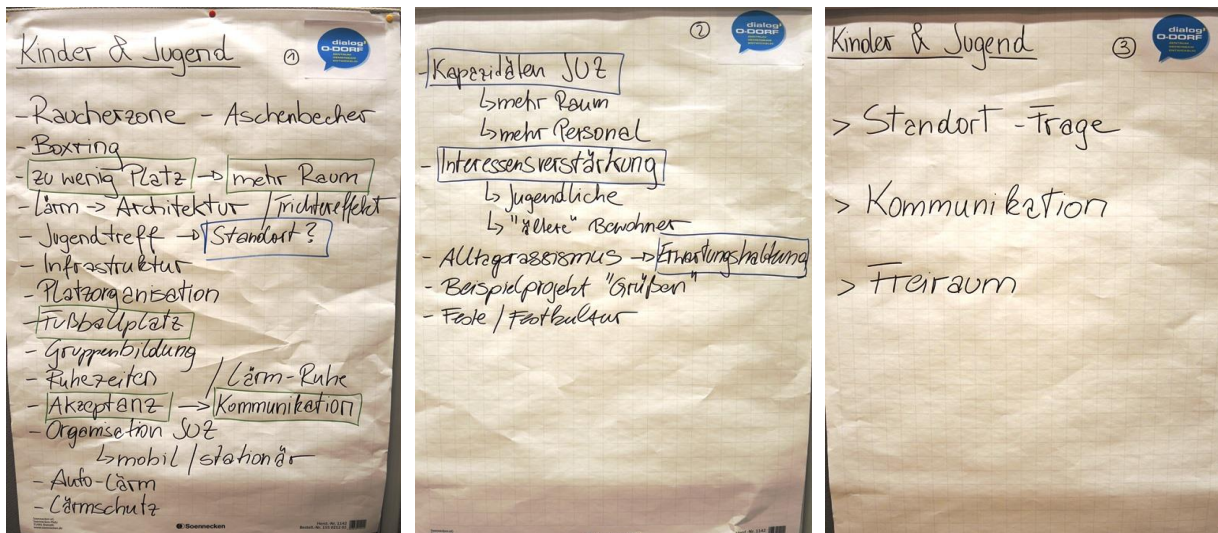 Kinder & Jugend
1
dialog'
O-DORF
- Raucherzone - Aschenbecher
- Boxring
- zu wenig Platz → mehr Raum
- Lärm → Architektur / Trichtereffekt
- Jugendtreff → Standort?
- Infrastruktur
- Platzorganisation
- Fußballplatz
- Gruppenbildung
- Ruhezeiten / Lärm-Ruhe
- Akzeptanz → Kommunikation
- Organisation JUZ
↳ mobil / stationär
- Auto-Lärm
- Lärmschutz
Soennecken
2
dialog'
O-DORF
- Kapazidäten JUZ
↳ mehr Raum
↳ mehr Personal
- Interessensverstärkung
↳ Jugendliche
↳ "ältere" Bewohner
- Alltagrassismus → Erwartungshaltung
- Beispielprojekt "Grüßen"
- Feste / Festkultur
Kinder & Jugend
3
dialog'
O-DORF
> Standort - Frage
> Kommunikation
> Freiraum